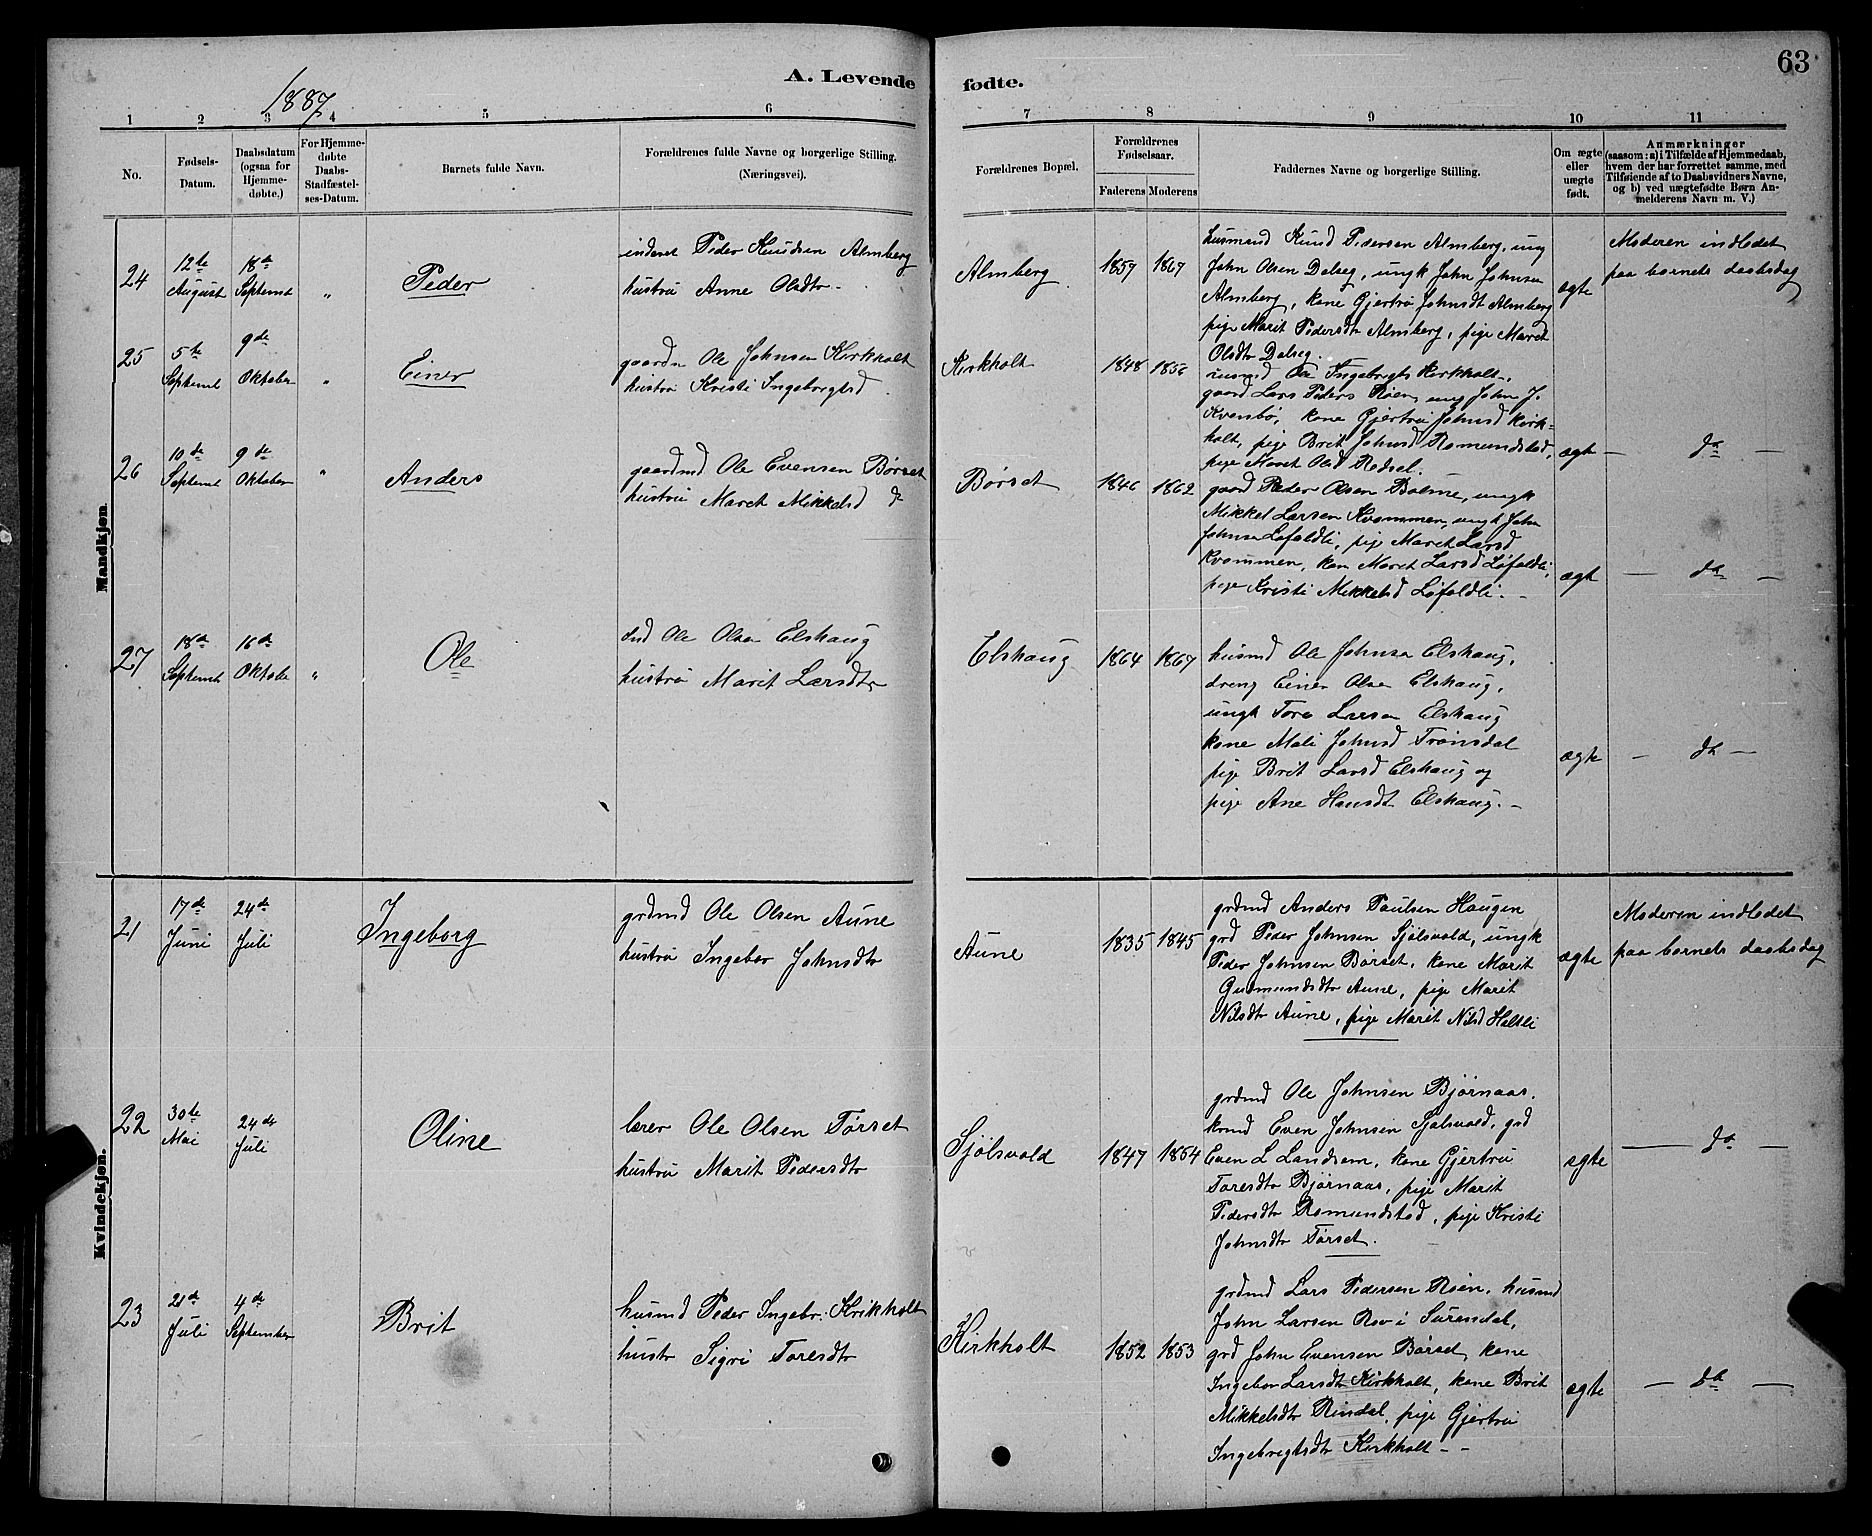 63
A. Levende fødte.
1887
1 2 3 4 5 6 7 8 9 10 11
No.
Fødsels-Datum.
Daabsdatum (ogsaa for Hjemme-døbte.)
For Hjemme-døbte Daabs-Stadfæstel-ses-Datum.
Barnets fulde Navn.
Forældrenes fulde Navne og borgerlige Stilling.
(Næringsvei).
Forældrenes Bopæl.
Forældrenes Fødselsaar.
Faderens Moderens
Faddernes Navne og borgerlige Stilling.
Om ægte eller uægte født.
Anmærkninger
(saasom: a) i Tilfælde af Hjemmedaab,
hvem der har forrettet samme, med
Tilføiende af to Daabsvidners Navne,
og b) ved uægtefødte Børn An-
melderens Navn m. V.)
Mandkjøn.
24
12te August
18de Septemt
"
Peder
inderst Peder Knudsen Almberg
hustru Anne Olsdtr -
Almberg
1859 1867
husmand Knud Pedersen Almberg, ung
John Olsen Dalseg, ungk John Johnsen
Almberg, kone Gjertru Johnsdt Almberg
pige Marit Pedersdtr Almberg, pige Maret
Olsdtr Dalseg.
ægte
Moderen indledet
paa barnets daabsdag
25
5te Septemt
9de Oktober
"
Einer
gaardm Ole Johnsen Kirkholt
hustru Kristi Ingebregtsd
Kirkholt
1848 1856
husmd Ole Ingebregts Kirkholt,
gaard Lars Peders Røen, ung John J.
Kvensbø, kone Gjertru Johnsd Kirk=
holt, pige Brit Johnsd Romundstad,
pige Maret Olsd Redsel.
ægt
— do —
26
10de Septemt
9de Oktober
"
Anders
gaardmd Ole Evensen Børset
hustru Maret Mikkelsd
Børset
1846 1862
gaard Peder Olsen Bolme, ungk
Mikkel Larsen Kvammen, ungk John
Johnsen Løfaldli, pige Maret Larsd
Kvammen, kon Maret Larsd Løfaldli,
pige Kristi Mikkelsd Løfaldli. -
ægt
— do —
27
18de Septemt
16de Oktobe
"
Ole
Ole Olsen Elshaug
hustru Marit Larsdtr
Elshaug
1864 1867
husmd Ole Johnsen Elshaug,
dreng Einer Olsen Elshaug,
ungk Tore Larsen Elshaug
kone Mali Johnsd Trønsdal
pige Brit Larsd Elshaug og
pige Ane Hansdt Elshaug. -
ægte
— do —
Kvindekjøn.
21
17de Juni
24de Juli
Ingeborg
grdmd Ole Olsen Aune
hustru Ingebor Johnsdtr
Aune
1835 1845
grdmd Anders Paulsen Haugen
grd Peder Johnsen Sjølsvold, ungk
Peder Johnsen Børset, kone Marit
Gudmundsdtr Aune, pige Marit
Nilsdtr Aune, pige Marit Nilsd Holtli
ægte
Moderen indledet
paa barnets daabsdag
22
30te Mai
24de Juli
Oline
lærer Ole Olsen Tørset
hustru Marit Pedersdtr
Sjølsvold
1847 1854
grdmd Ole Johnsen Bjørnaas.
Even Johnsen Sjølsvold, grd
Even L Landsem, kone Gjertru
Toresdtr Bjørnaas, pige Marit
Pedersdtr Romundstad, pige Kristi
Johnsdtr Tørset.
ægte
— do —
23
21de Juli
4de September
Brit
husmd Peder Ingebr. Krikholt
hustr Sigri Toresdtr
Kirkholt
1852 1853
grdmd Lars Pedersen Røen, husmd
John Larsen Rov i Surendal,
grd John Evensen Børset, kone
Ingebor Larsdtr Kirkholt, kone Brit
Mikkelsdtr Rindal, pige Gjertru
Ingebregtsdtr Kirkholt - -
ægte
— do —